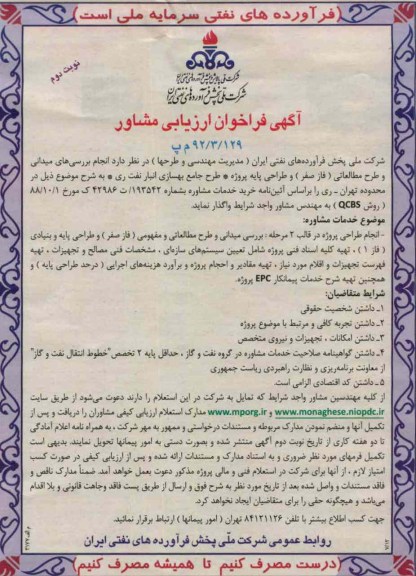 فرآورده های نفتی سرمایه ملی است
نوبت دوم
شرکت ملی پالایش و پخش فرآورده‌های نفتی ایران
شرکت ملی پخش فرآورده‌های نفتی ایران
آگهی فراخوان ارزیابی مشاور
۹۲/۳/۱۲۹ م پ
شرکت ملی پخش فرآورده‌های نفتی ایران ( مدیریت مهندسی و طرحها ) در نظر دارد انجام بررسی‌های میدانی
و طرح مطالعاتی ( فاز صفر ) و طراحی پایه پروژه * طرح جامع بهسازی انبار نفت ری * به شرح موضوع ذیل در
محدوده تهران ـ ری را براساس آئین‌نامه خرید خدمات مشاوره بشماره ۱۹۳۵۴۲/ ت ۴۲۹۸۶ ک مورخ ۸۸/۱۰/۱
( روش QCBS ) به مهندس مشاور واجد شرایط واگذار نماید.
موضوع خدمات مشاوره:
- انجام طراحی پروژه در قالب ۲ مرحله : بررسی میدانی و طرح مطالعاتی و مفهومی ( فاز صفر ) و طراحی پایه و بنیادی
( فاز ۱ ) ، تهیه کلیه اسناد فنی پروژه شامل تعیین سیستم‌های سازه‌ای ، مشخصات فنی مصالح و تجهیزات ، تهیه
فهرست تجهیزات و اقلام مورد نیاز ، تهیه مقادیر و احجام پروژه و برآورد هزینه‌های اجرایی ( درحد طراحی پایه ) و
همچنین تهیه شرح خدمات پیمانکار EPC پروژه.
شرایط متقاضیان:
۱ـ داشتن شخصیت حقوقی
۲ـ داشتن تجربه کافی و مرتبط با موضوع پروژه
۳ـ داشتن امکانات ، تجهیزات و نیروی متخصص
۴ـ داشتن گواهینامه صلاحیت خدمات مشاوره در گروه نفت و گاز ، حداقل پایه ۲ تخصص "خطوط انتقال نفت و گاز"
از معاونت برنامه‌ریزی و نظارت راهبردی ریاست جمهوری
۵ـ داشتن کد اقتصادی الزامی است.
از کلیه مهندسین مشاور واجد شرایط که تمایل به شرکت در این استعلام را دارند دعوت می‌شود از طریق سایت
www.monaghese.niopdc.ir و www.mporg.ir مدارک استعلام ارزیابی کیفی مشاوران را دریافت و پس از
تکمیل آنها و منضم نمودن مدارک مربوطه و مستندات درخواستی و ممهور به مهر شرکت ، به همراه نامه اعلام آمادگی
تا دو هفته کاری از تاریخ نوبت دوم آگهی منتشر شده و بصورت دستی به امور پیمانها تحویل نمایند، بدیهی است
تکمیل فرمهای مورد نظر ضروری و به استناد مدارک و مستندات ارائه شده و پس از ارزیابی کیفی در صورت کسب
امتیاز لازم ، از آنها برای شرکت در استعلام فنی و مالی پروژه مذکور دعوت بعمل خواهد آمد. ضمناً مدارک ناقص و
فاقد مستندات و واصل شده بعد از تاریخ مورد نظر به شرح فوق و ارسال از طریق پست فاقد وجاهت قانونی و بلا اقدام
می‌باشد و هیچگونه حقی را برای متقاضیان ایجاد نخواهد کرد.
جهت کسب اطلاع بیشتر با تلفن ۸۴۱۲۱۱۲۶ تهران ( امور پیمانها ) ارتباط برقرار نمائید.
روابط عمومی شرکت ملّی پخش فرآورده های نفتی ایران
درست مصرف کنیم تا همیشه مصرف کنیم